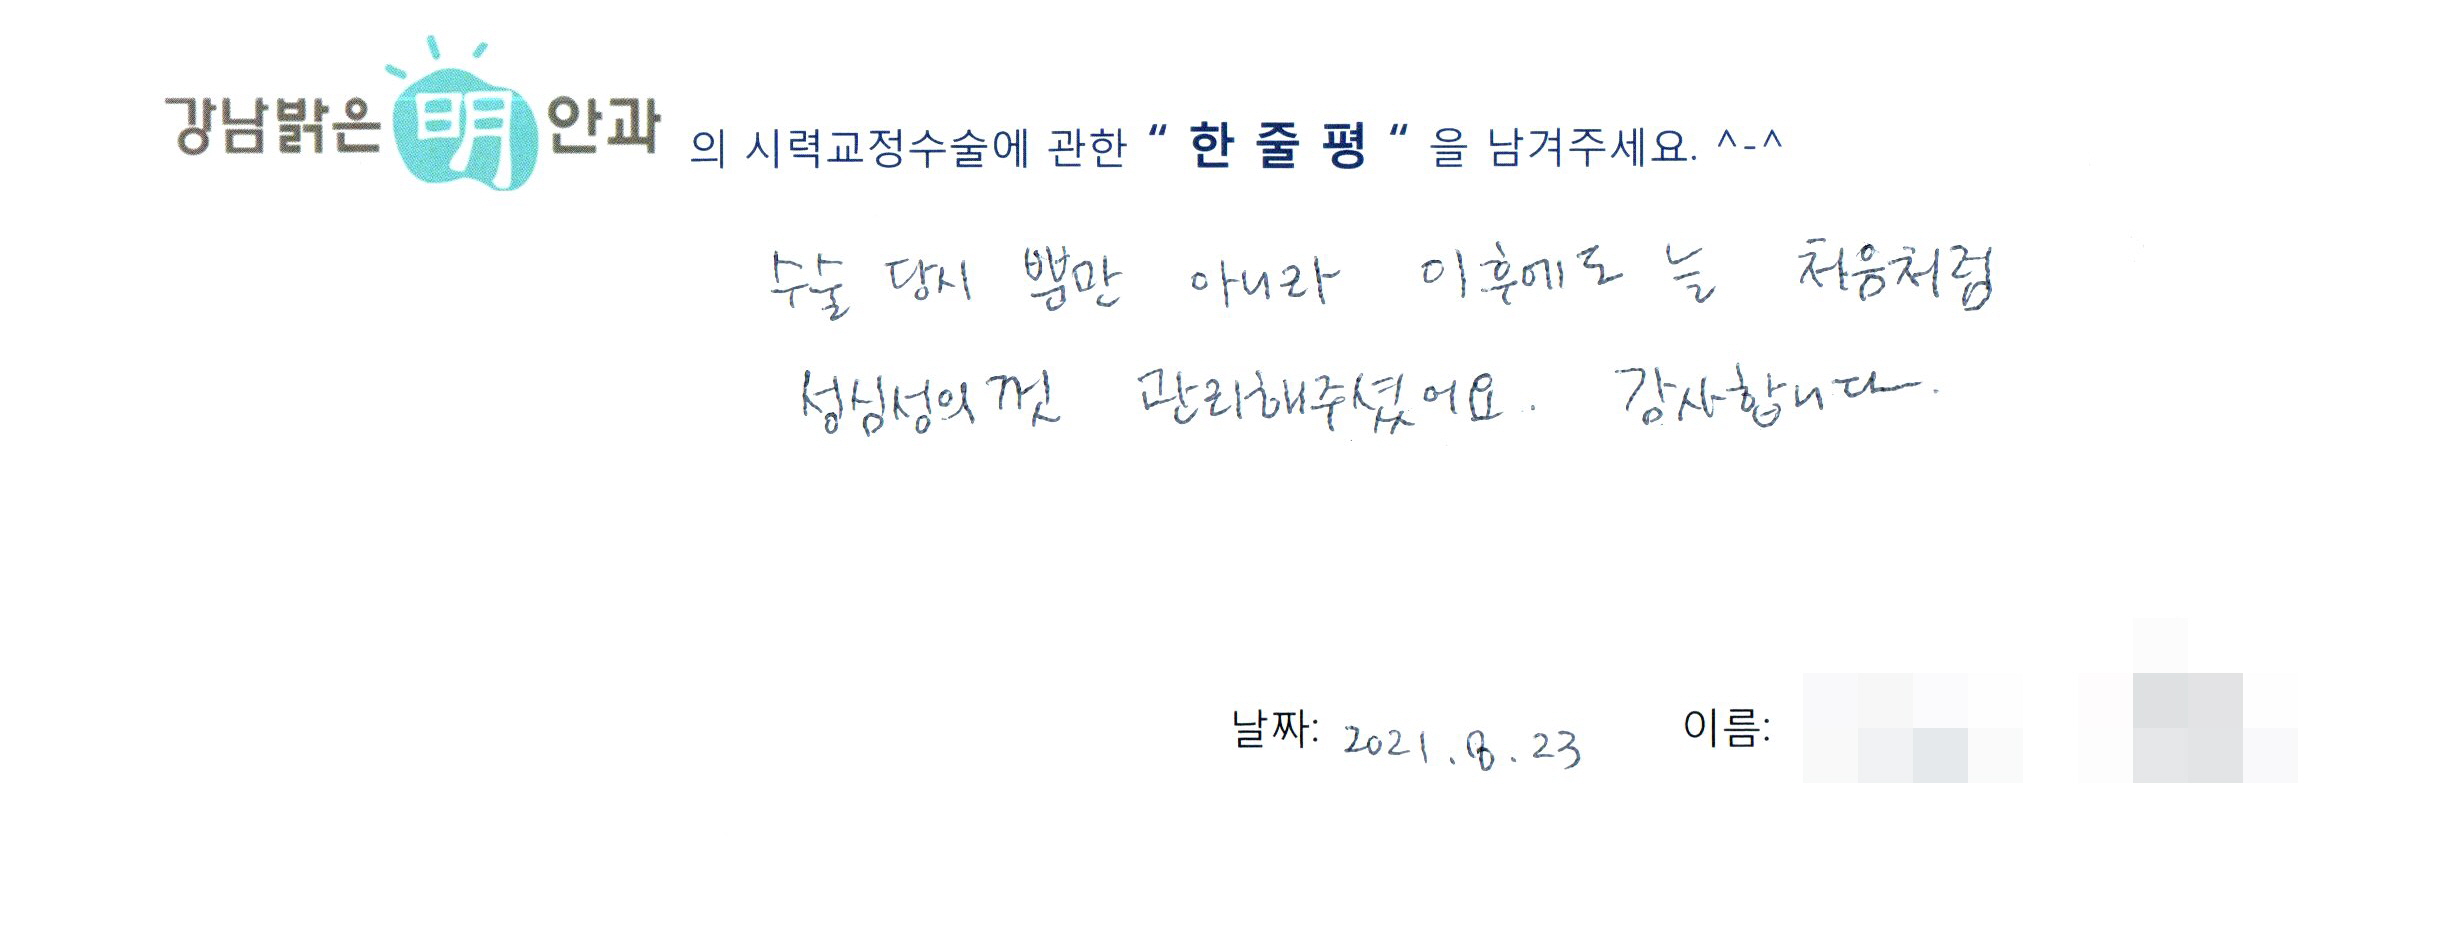 강남밝은 明 안과 의 시력교정수술에 관한 “ 한 줄 평 “ 을 남겨주세요. ^-^
수술 당시 뿐만 아니라 이후에도 늘 처음처럼
성심성의껏 관리해주셨어요. 감사합니다.
날짜: 2021.8.23 이름: